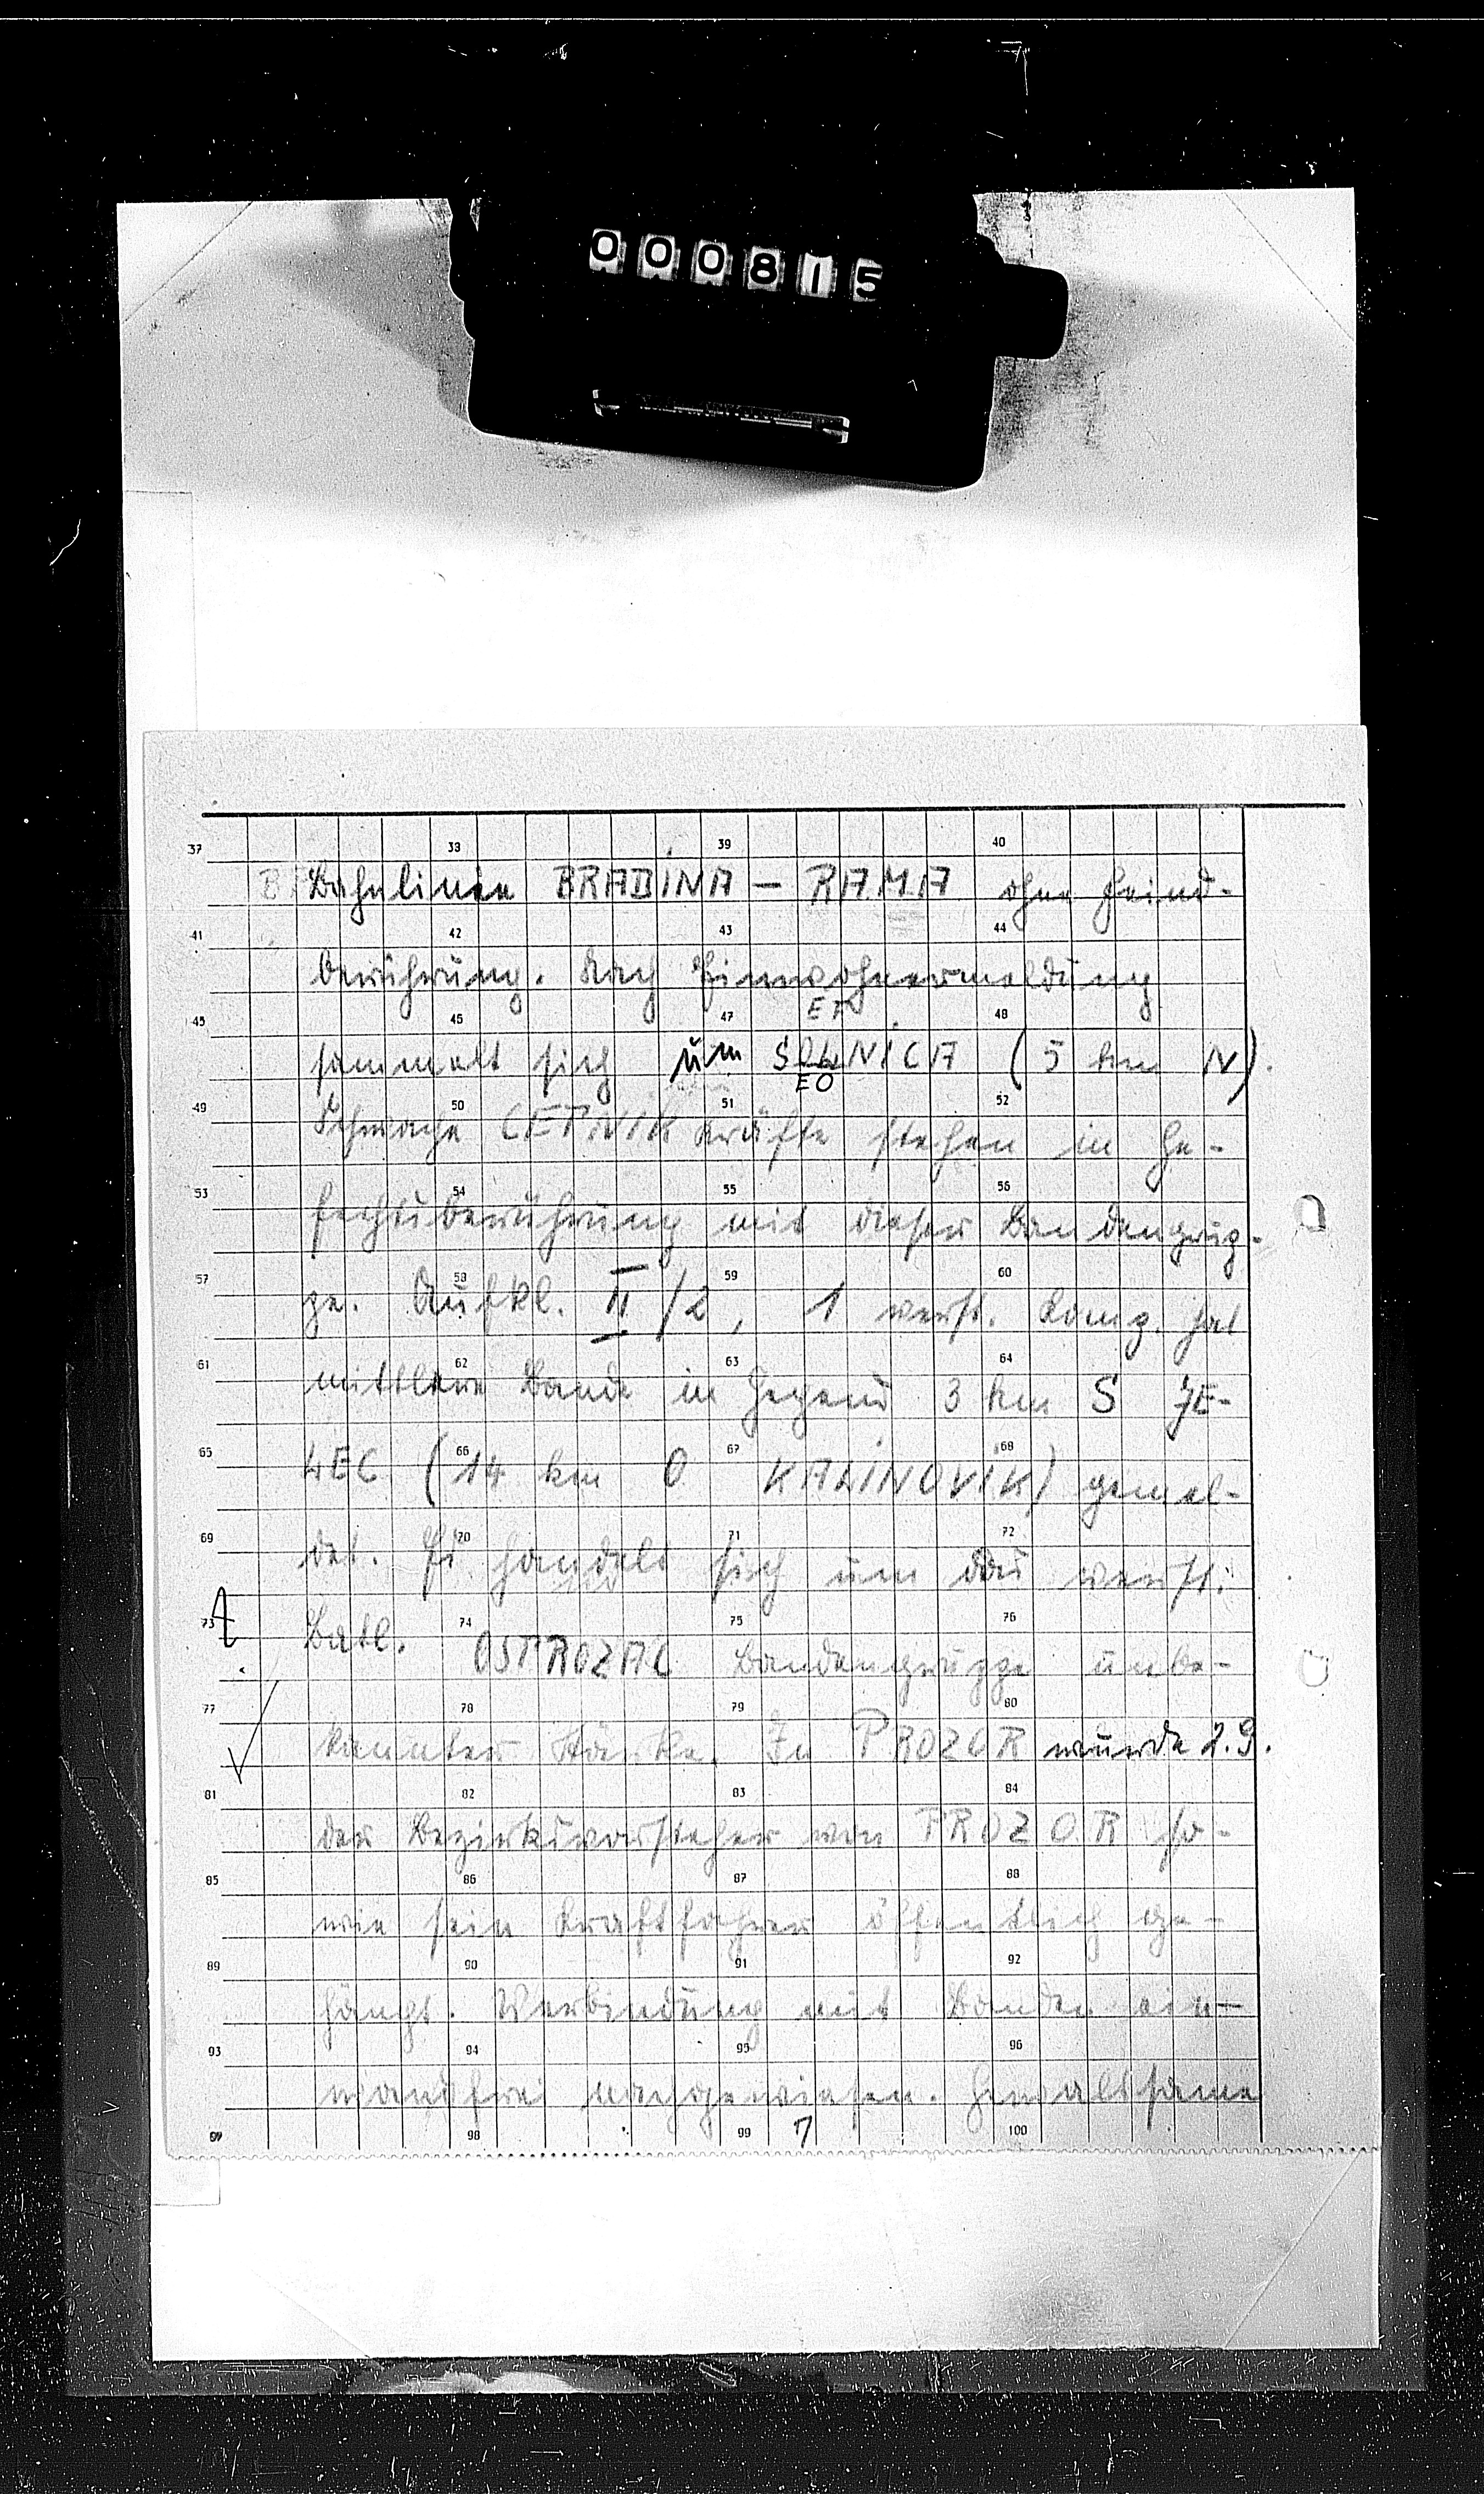 000815
37 38 39 40
Bahnlinie BRADINA — RAMA ohne Feind-
41 42 43 44
berührung. Nach Einwohnermeldung
45 46 47 48
sammelt sich um SOLNICA (5 km N).
49 50 51 52
Schwache CETNIK Kräfte stehen in Ge-
53 54 55 56
fechtsberührung mit dieser Bandengrup-
57 58 59 60
pe. Aufkl. II/2, 1 verst. Komp. hat
61 62 63 64
mittlere Bande in Gegend 3 km S JE-
65 66 67 68
LEC (14 km O KALINOVIK) gemel-
69 70 71 72
det. Es handelt sich um das verst.
73 74 75 76
Batl. OSTROZAC Bandengruppe unbe-
77 78 79 80
kannter Stärke. In PROZOR wurde 2.9.
81 82 83 84
der Bezirksvorsteher von PROZOR so-
85 86 87 88
wie sein Kraftfahrer öffentlich ge-
89 90 91 92
hängt. Verbindung mit Banden ein-
93 94 95 96
wandfrei nachgewiesen. Gewaltsame
97 98 99 100